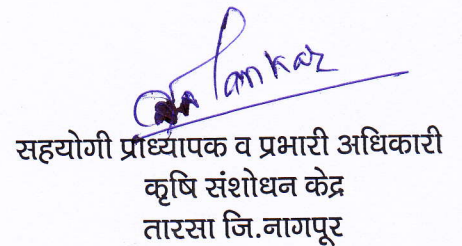 सहयोगी प्राध्यापक व प्रभारी अधिकारी
कृषि संशोधन केंद्र
तारसा जि.नागपूर